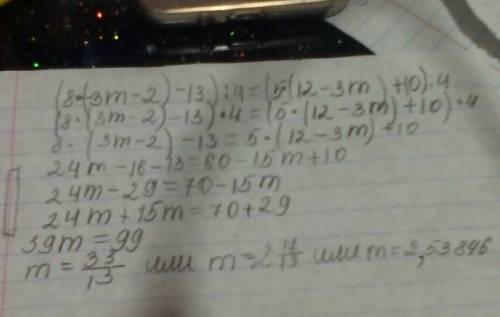 (8·(3m-2)-13):4=(5·(12-3m)+10):4
(8·(3m-2)-13)·4=(5·(12-3m)+10)·4
8·(3m-2)-13=5·(12-3m)+10
24m-16-13=60-15m+10
24m-29=70-15m
24m+15m=70+29
39m=99
m=33/13 или m=2 4/13 или m=2,53846